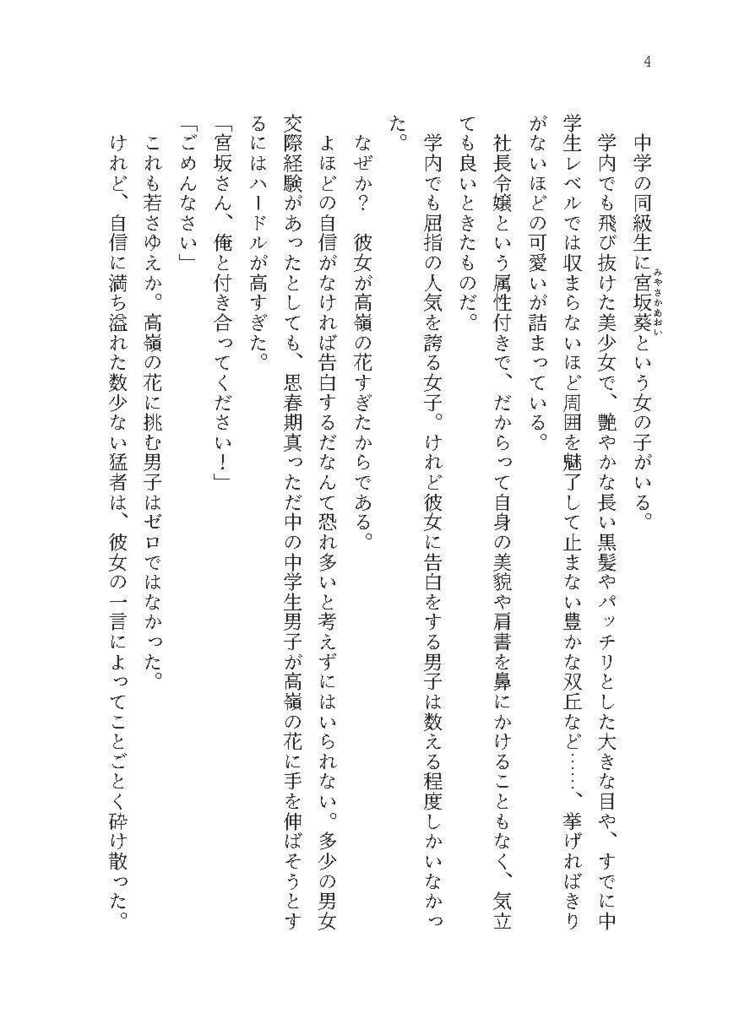 4
中学の同級生に宮坂葵という女の子がいる。
みやさかあおい
学内でも飛び抜けた美少女で、艶やかな長い黒髪やパッチリとした大きな目や、すでに中
学生レベルでは収まらないほど周囲を魅了して止まない豊かな双丘など……、挙げればきり
がないほどの可愛いが詰まっている。
社長令嬢という属性付きで、だからって自身の美貌や肩書を鼻にかけることもなく、気立
ても良いときたものだ。
学内でも屈指の人気を誇る女子。けれど彼女に告白をする男子は数える程度しかいなかっ
た。
なぜか？　彼女が高嶺の花すぎたからである。
よほどの自信がなければ告白するだなんて恐れ多いと考えずにはいられない。多少の男女
交際経験があったとしても、思春期真っただ中の中学生男子が高嶺の花に手を伸ばそうとす
るにはハードルが高すぎた。
「宮坂さん、俺と付き合ってください！」
「ごめんなさい」
これも若さゆえか。高嶺の花に挑む男子はゼロではなかった。
けれど、自信に満ち溢れた数少ない猛者は、彼女の一言によってことごとく砕け散った。